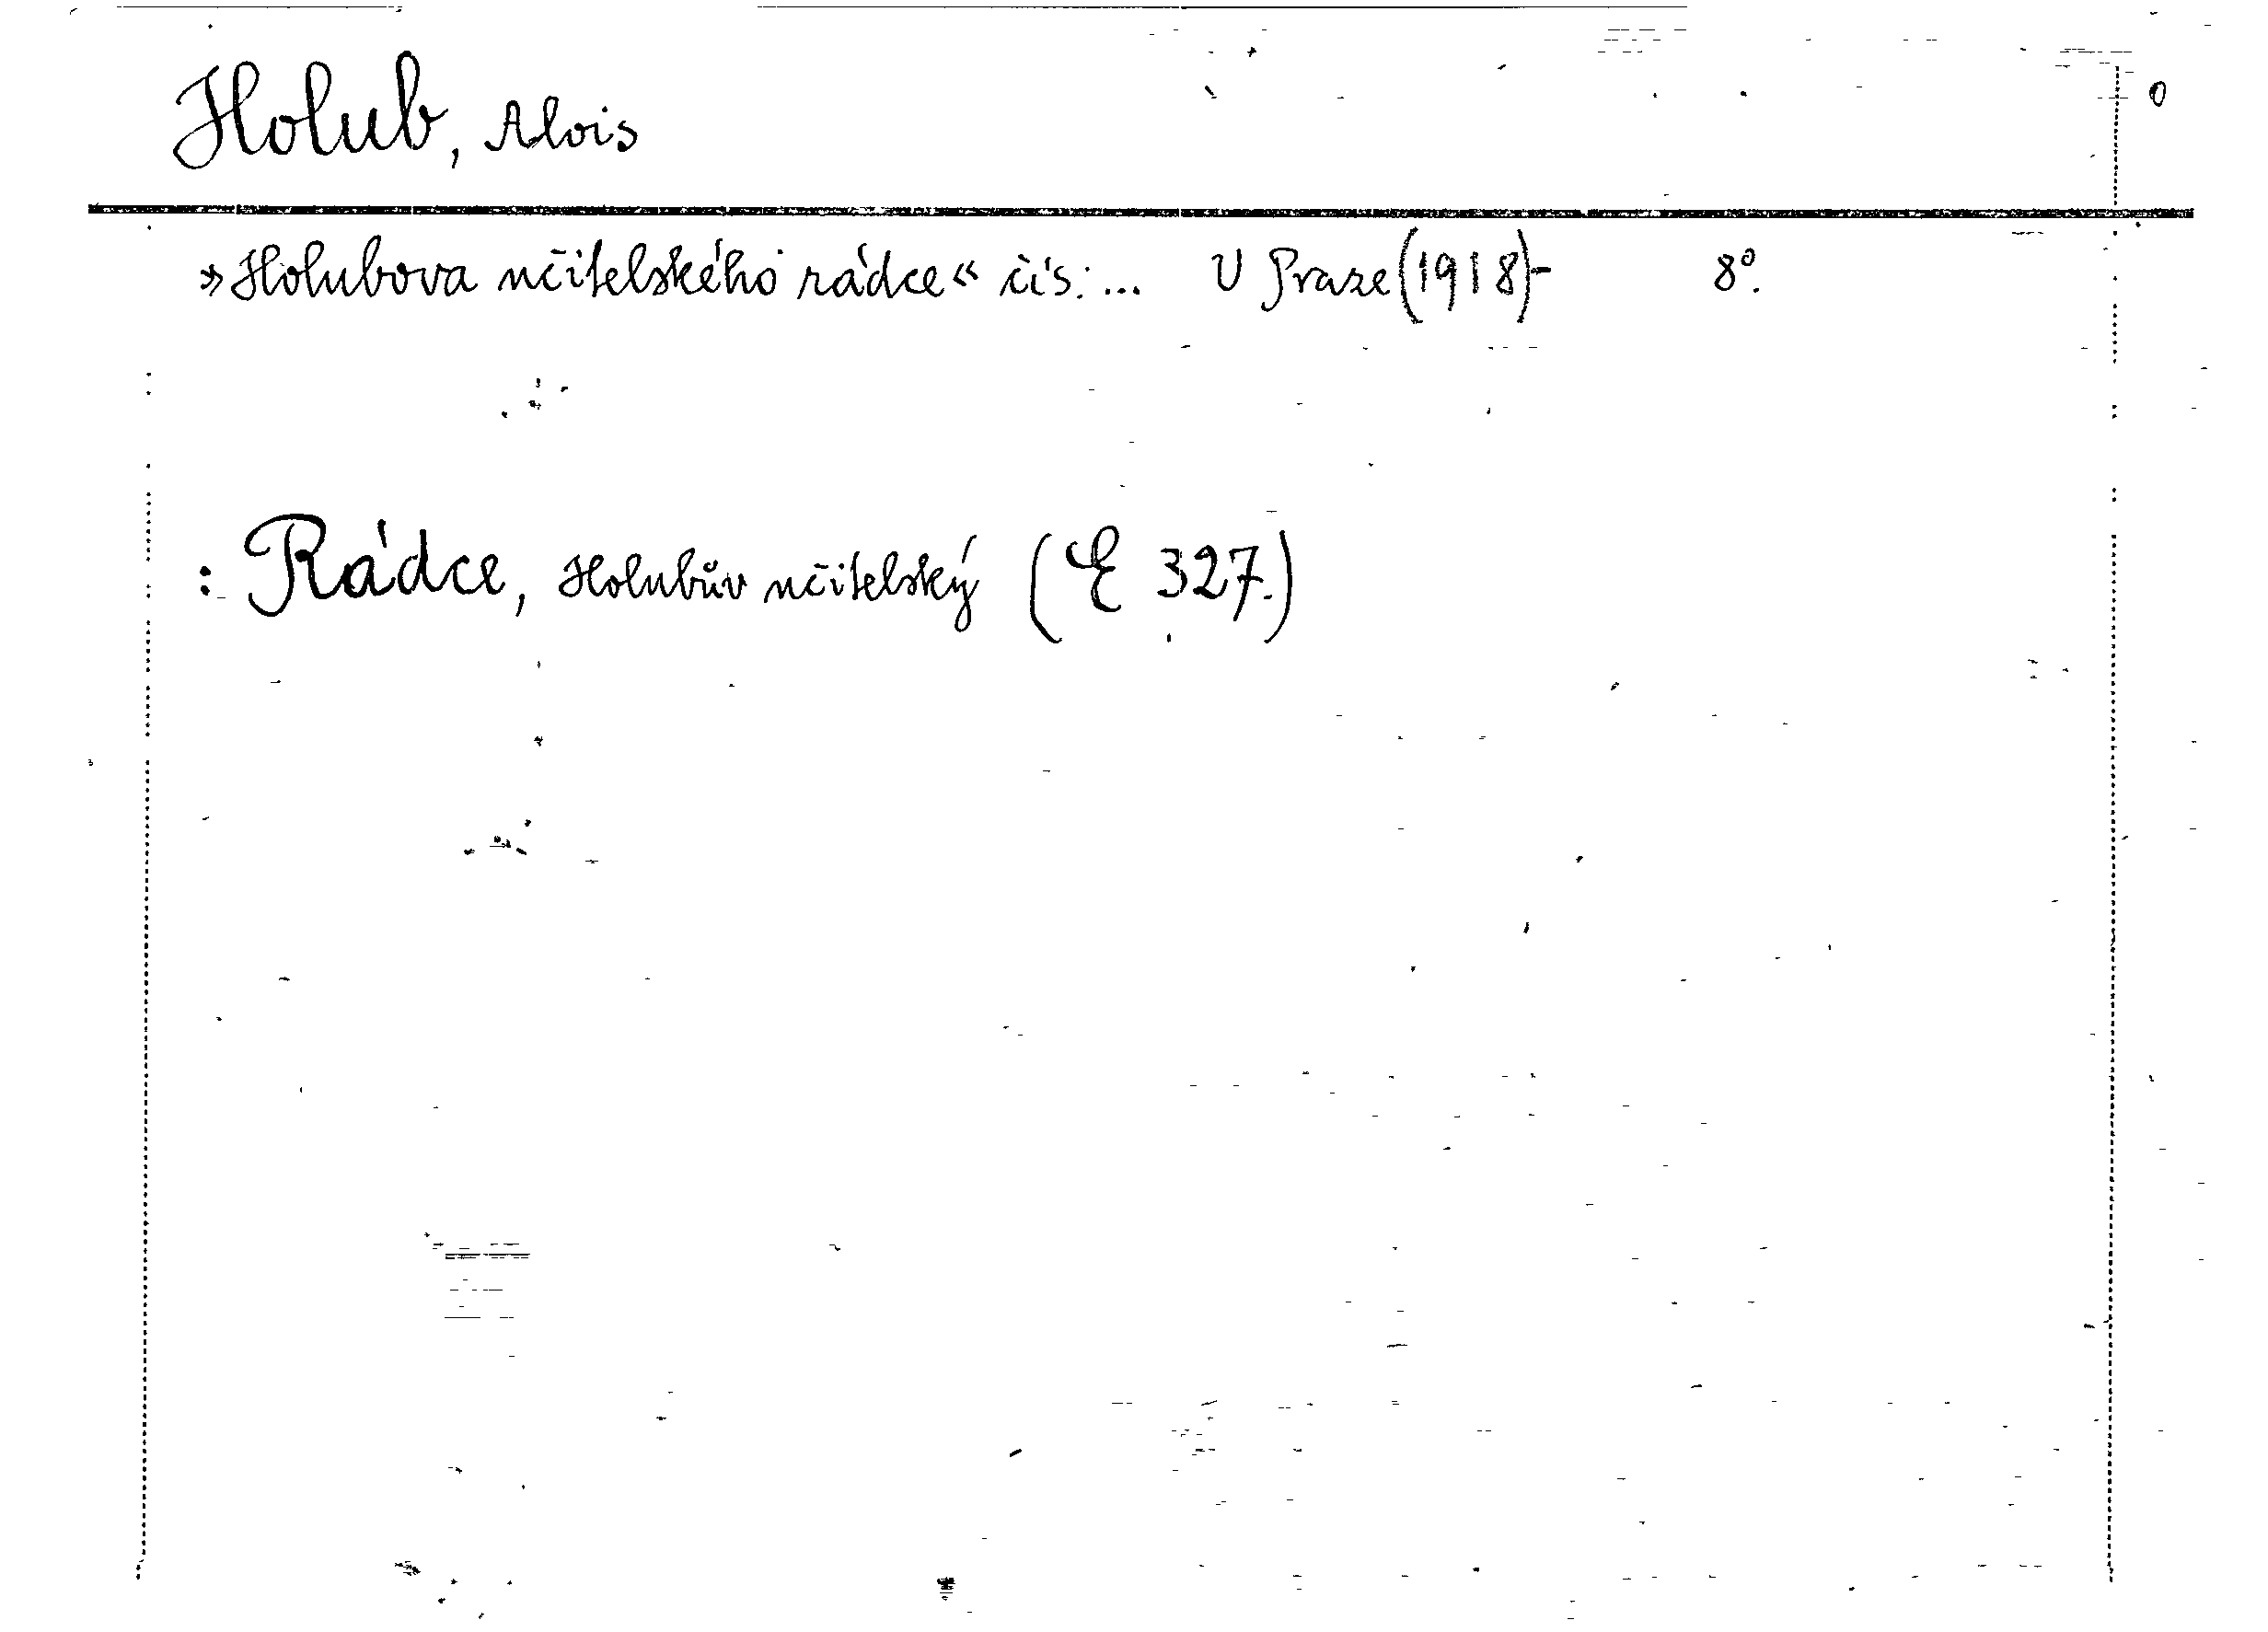 Holub, Alois 0
»Holubova učitelského rádce« čís: ... V Praze (1918)- 8°.
: Rádce, Holubův učitelský (E 327.)